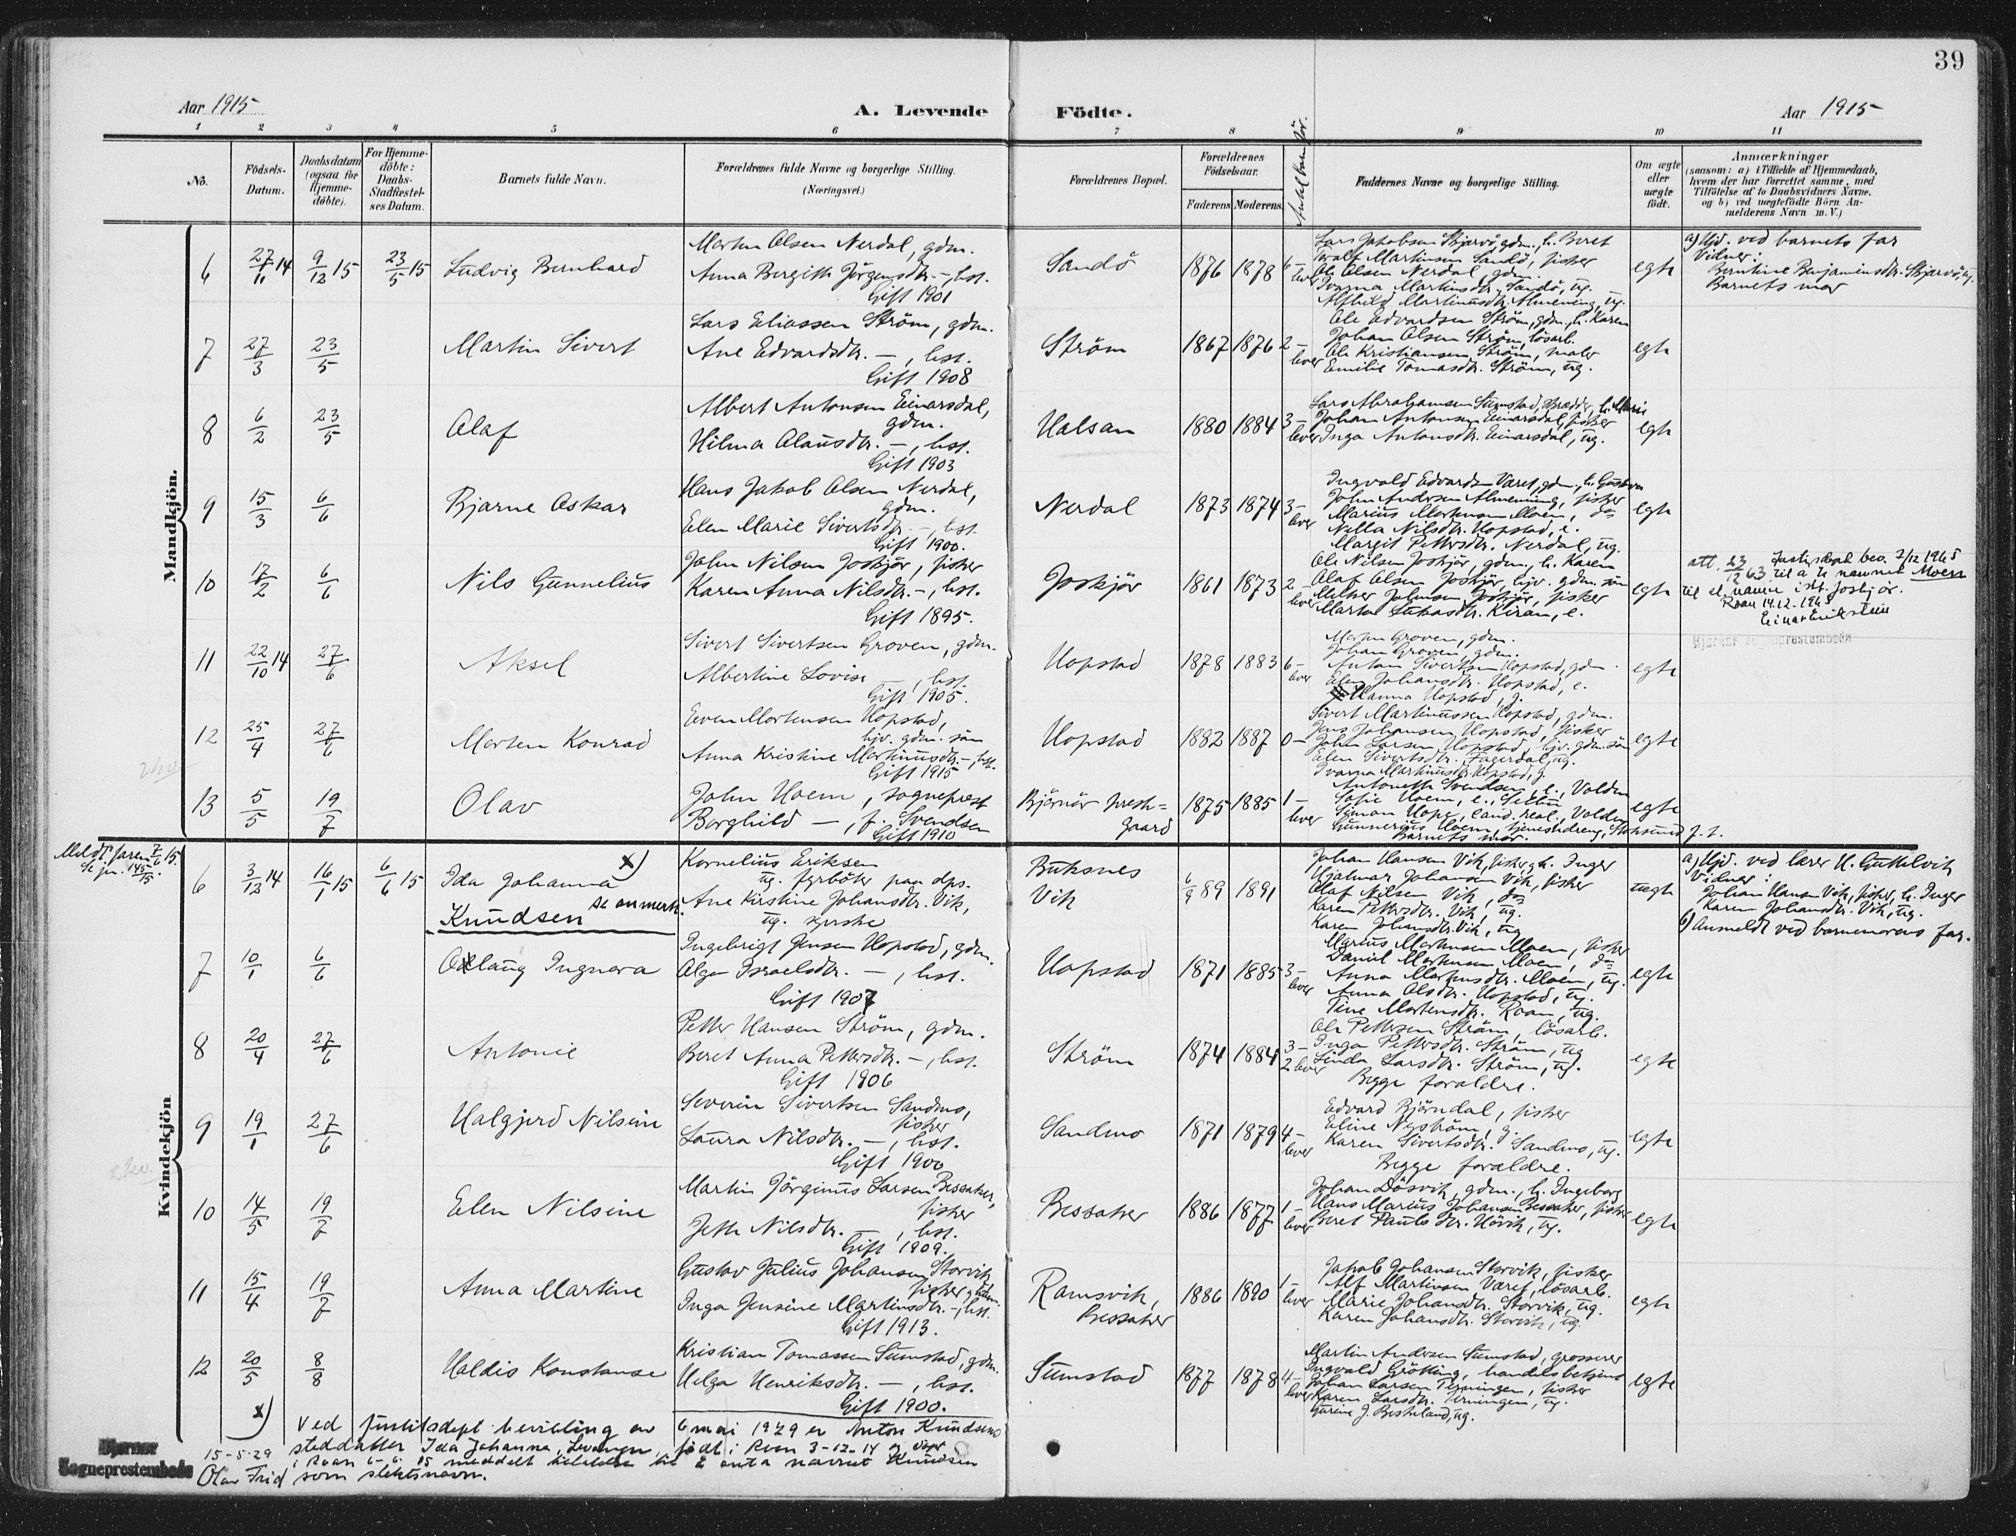 39
Aar 1915
A. Levende Födte.
Aar 1915
1 2 3 4 5 6 7 8 9 10 11
No.
Födsels-Datum.
Daabsdatum (ogsaa for Hjemme-döbte).
For Hjemme-döbte: Daabs-Stadfæstel-ses Datum.
Barnets fulde Navn.
Forældrenes fulde Navne og borgerlige Stilling.
(Næringsvei.)
Forældrenes Bopæl.
Forældrenes Födselsaar.
Faderens Moderens
Antal barn för.
Faddernes Navne og borgerlige Stilling.
Om ægte eller uægte födt.
Anmærkninger
(saasom: a) i Tilfælde af Hjemmedaab, hvem der har forrettet samme, med Tilföielse af to Daabsvidners Navne, og b) ved uægtefödte Börn Anmelderens Navn m. V.)
Mandkjön.
6 27/11 14 9/12 15 23/5 15 Ludvig Bernhard
Morten Olsen Nerdal, gdm.
Anna Bergith Jörgensdtr. —, hst.
Gift 1901
Sandö 1876 1878 6 – lever
Lars Jakobsen Skjærvö, gdm., h. Beret
Martinsen Sandö, fisker
Ole Olsen Nerdal, gdm.
Ivarna Martinsdtr. Sandö, ug.
Alfhild Martinusdtr. Almenning, ug.
egte
a) Hjd. ved barnets far
Vidner:
Berntine Benjaminsdtr. Skjærvö, ug.
Barnets mor
7 27/3 23/5 Martin Sivert
Lars Eliassen Ström, gdm.
Ane Edvardsdtr. —, hst.
Gift 1908
Ström 1867 1876 2 – lever
Ole Edvardsen Ström, gdm., h. Karen
Johan Olsen Ström, lösarb.
Ole Kristiansen Ström, maler
Emilie Tomasdtr. Ström, ug.
egte
8 6/2 23/5 Olaf
Albert Antonsen Einarsdal, gdm.
Hilma Olausdtr. —, hst.
Gift 1903
Halsan 1880 1884 3 – lever
Lars Abrahamsen Sumstad, skrædder, h. Marie
Johan Antonsen Einarsdal, fisker
Inga Antonsdtr. Einarsdal, ug.
egte
9 15/3 6/6 Bjarne Oskar
Hans Jakob Olsen Nerdal, gdm.
Elen Marie Sivertsdtr. —, hst.
Gift 1900.
Nerdal 1873 1874 3 – lever
Ingvald Edvardsen Været, gdm., h. Gustava
John Andersen Almenning, fisker
Marius Mortensen Moen, do
Nilsdtr. Hopstad, e.
Margit Pettersdtr. Nerdal, ug.
egte
10 17/2 6/6 Nils Gunnelius
John Nilsen Joskjör, fisker
Karen Anna Nilsdtr. —, hst.
Gift 1895.
Joskjör 1861 1873 2 lever
Ole Nilsen Joskjör, gdm., h. Karen
Olaf Olsen Joskjör, hjv. gdm. sön
Johnsen Joskjör, fisker
Marta Lukasdtr. Kiran, e.
egte
att. 23/12 63 Justisdept. bev. 2/12 1965
til å ta navnet Moen
til el. navne ist. Joskjör.
Roan 14.12.1965
11 22/10 14 27/6 Aksel
Sivert Sivertsen Groven, gdm.
Albertine Lovise —, hst.
Gift 1905.
Hopstad 1878 1883 6 – lever
Morten Groven, gdm.
Johan Groven, gdm.
Anton Sivertsen Hopstad, gdm.
Elen Johansdtr. Hopstad, e.
Hanna Hopstad, g.
egte
12 25/4 27/6 Morten Konrad
Even Mortensen Hopstad, hjv. gdm. sön
Anna Kristine Martinusdtr. —, hst.
Gift 1915
Hopstad 1882 1887 0 –
Sivert Martinussen Hopstad, gdm.
Jens Johansen Hopstad, fisker
John Larsen Hopstad, hjv. gdm. sön
Elen Sivertsdtr. Fagerdal, ug.
Ivarna Martinusdtr. Hopstad, g.
egte
13 5/5 19/7 Olav
John Hoem, sogneprest
Borghild —, f. Svendsen
Gift 1910
Björnör prestegaard 1875 1885 1 – lever
Antonette Svendsen, e., Volden
Sofie Hoem, e.,
Simon Hope, cand. real., Volden
Gunnerius Hoem, tjenestedreng, Stoksund p. t.
Barnets mor
egte
Kvindekjön
Meldt faren 7/6 15
Se jnr. 145/15.
6 3/12 14 16/1 15 6/6 15 Ida Johanna x)
se anmerk.
Knudsen
Kornelius Eriksen
ug. fyrböter paa dps.
Ane Kirstine Johansdtr. Vik,
ug. syerske
Buksnes
Vik
6/9 89 1891
Johan Hansen Vik, fisker, h. Inger
Hjalmar Johansen Vik, fisker
Olaf Nilsen Vik, do
Karen Pettersdtr. Vik, ug.
Karen Johansdtr. Vik, ug
uegte
a) Hjd. ved lærer H. Guttelvik
Vidner:
Johan Hansen Vik, fisker, h. Inger
Karen Johansdtr. Vik, ug.
b) Anmeldt ved barnemorens far.
7 10/1 6/6 Oddlaug Ingvara
Ingebrigt Jensen Hopstad, gdm.
Olga Israelsdtr. —, hst.
Gift 1907
Hopstad 1871 1885 3 – lever
Marius Mortensen Moen, fisker
Daniel Mortensen Moen, do
Anna Mortensdtr. Moen, ug.
Anna Olsdtr. Hopstad, ug.
Tine Mortensdtr. Roan, ug.
egte
8 20/4 27/6 Antonie
Petter Hansen Ström, gdm.
Beret Anna Pettersdtr. —, hst.
Gift 1906
Ström 1874 1884 3 – 2 lever
Ole Pettersen Ström, lösarb.
Inga Pettersdtr. Ström, ug
Linda Larsdtr. Ström, ug.
Begge forældre.
egte
9 19/1 27/6 Halgjerd Nilsine
Severin Sivertsen Sandmo, fisker
Laura Nilsdtr. —, hst.
Gift 1900
Sandmo 1871 1879 4 – lever
Edvard Bjørndal, fisker
Eline Nyström, g.
Karen Sivertsdtr. Sandmo, ug.
Begge forældre.
egte
10 14/5 19/7 Elen Nilsine
Martin Jörginus Larsen Bessaker, fisker
Jette Nilsdtr. —, hst.
Gift 1909.
Bessaker 1886 1877 1 – lever
Johan Dösvik, gdm., h. Ingeborg
Hans Marius Johansen Bessaker, fisker
Beret Paulsdtr. Hövik, ug.
egte
11 15/4 19/7 Anna Martine
Gustav Julius Johansen Storvik, fisker, gdm.
Inga Jensine Martinsdtr. —, hst.
Gift 1913.
Ramsvik, Bessaker 1886 1890 1 – lever
Jakob Johansen Storvik, fisker
Alf Martinsen Været, lösarb.
Marie Johansdtr. Storvik, ug.
Karen Johansdtr. Storvik, ug.
egte
12 20/5 8/8 Haldis Konstanse
Kristian Tomassen Sumstad, gdm.
Helga Henriksdtr. —, hst.
Gift 1900.
Sumstad 1877 1878 4 – lever
Martin Andersen Sumstad, grosserer
Ingvald Grötting, handelsbetjent
Johan Larsen Terningen, fisker
Karen Larsdtr. Terningen, ug.
egte
x) Ved Justisdept bevilling av 6 mai 1929 er Anton Knudsens
steddatter Ida Johanna, Levanger, født i Roan 3-12-14 og døpt
i Roan 6-6-15 meddelt tillatelse til å anta navnet Knudsen
som slektsnavn.
15-5-29
Olav Frid
Bjørnør
Sogneprestembede